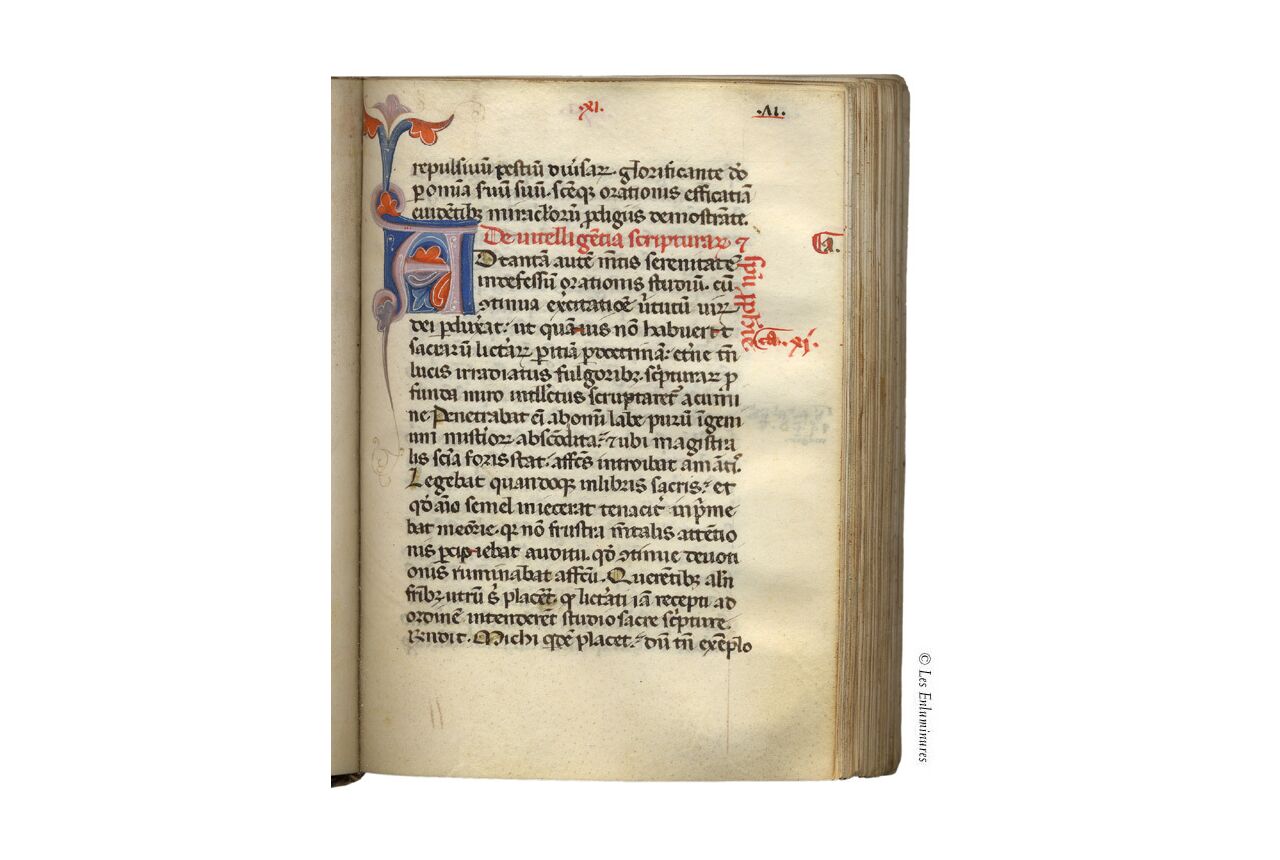 ·XI·
·VI·
repulsiuū pestiū diuisaꝝ. glorificante dō
ꝑ omnia s̄uū suū. scēqꝫ orationis efficatiā
euidētibꝫ miraclorū ꝓdigiis demōstrāte.
De intelligētia scripturaꝝ ⁊
sp̄u ꝓphetie
Ca. xi.
Ca.
AD tantā autē mētis serenitatē
indefessū orationis studiū. cū
ↄtinua exercitatiōe v̄tutū uiꝝ
dei ꝑduxāt. ut quāuis nō habuerit
sacraꝝ lictāꝝ ꝑitiā ꝑ doctrinā. etīne tn̄
lucis irradiatus fulgoribꝫ. sc̄pturaꝝ ꝓ
funda miro intll̄ectus scruptaret̄ acumi
ne Penetrabat eī ab omī labe purū īgeni
um mistioꝝ abscōdita. ⁊ ubi magistra
lis scīa foris stat. affc̄s introibat amātis.
Legebat quandoqꝫ in libris sacris. et
qd̄ aīo semel iniecerat tenacit̄ inp̄me
bat meōrie. qꝛ nō frustra m̄talis attētio
nis ꝑcipiebat auditu. qd̄ ↄtinue deuoti
onis ruminabat affc̄u. Querētibꝫ aln̄
fr̄ibꝫ utrū s̄ placēt. qd̄ lictāti iā recepti ad
ordinē intenderēt studio sacre sc̄pture.
R̄ndit. Michi qdē placet. dū tn̄ exēplo
© Les Enluminures